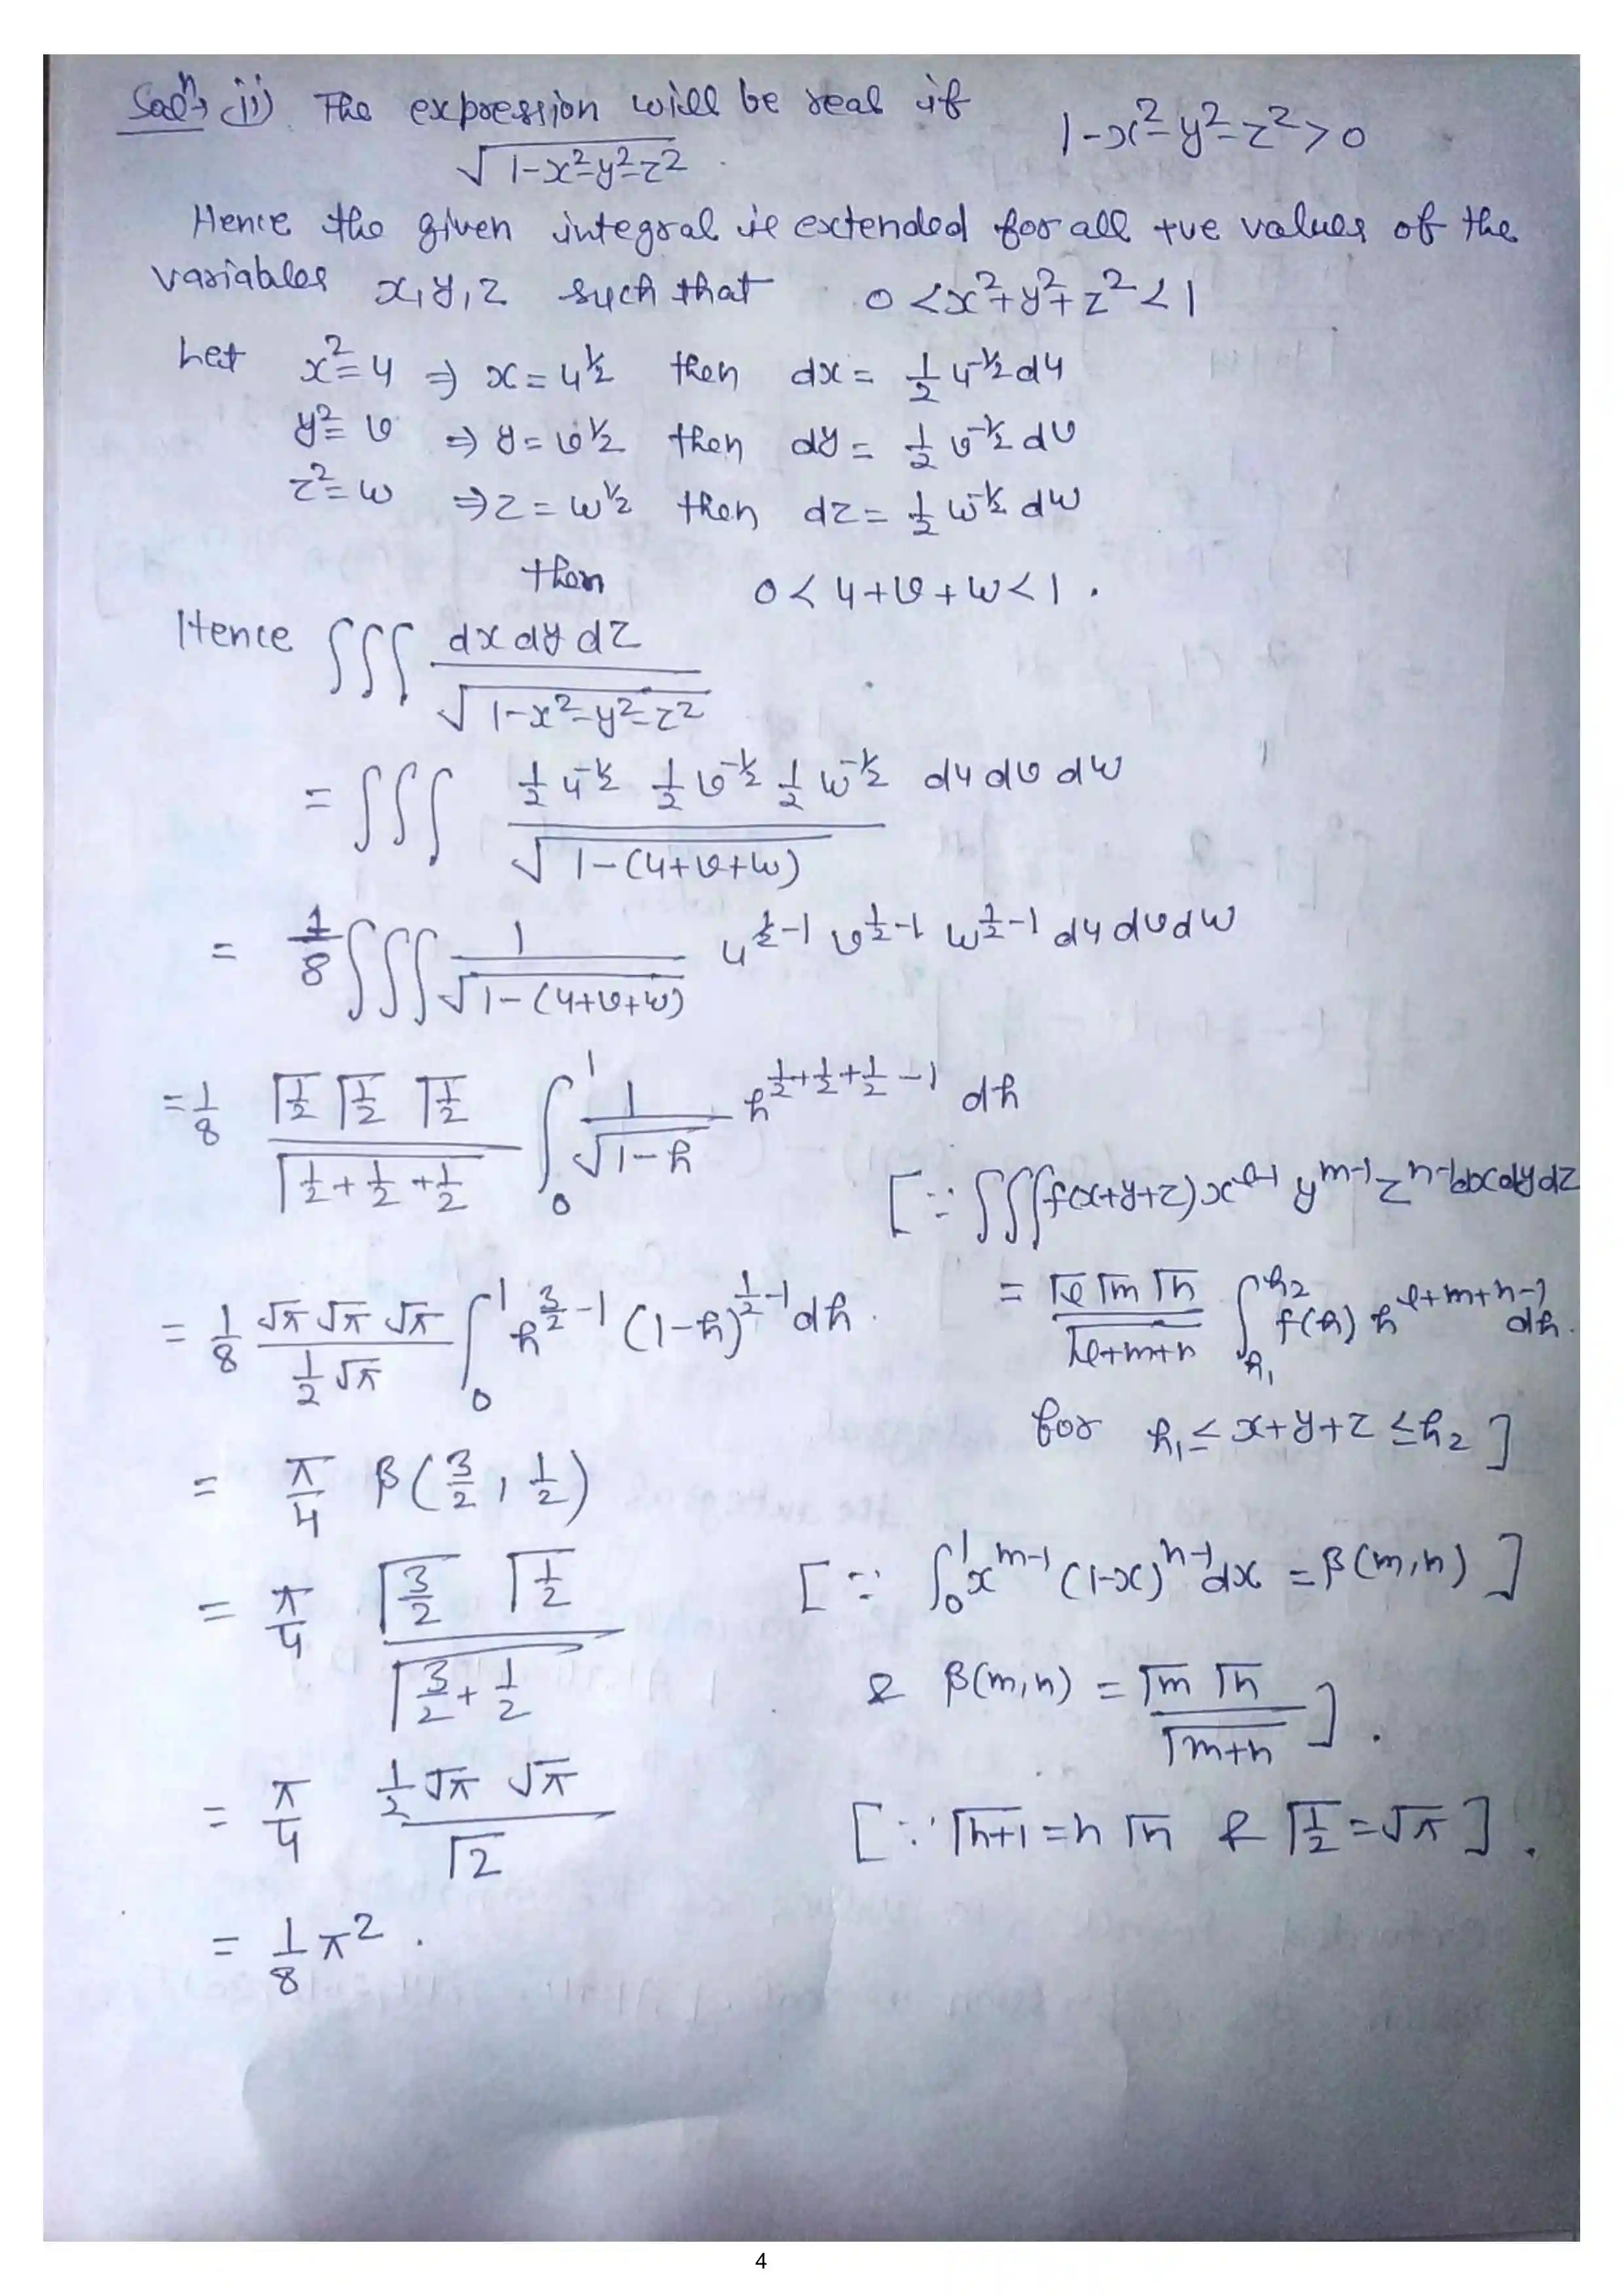 Solⁿ→ (ii) The expression will be real if 1-x²-y²-z²>0
√(1-x²-y²-z²).
Hence the given integral is extended for all +ve values of the
variables x, y, z such that 0<x²+y²+z²<1
Let x²=u ⇒ x=u^½ then dx = 1/2 u^-½ du
y²=v ⇒ y=v^½ then dy = 1/2 v^-½ dv
z²=w ⇒ z=w^½ then dz = 1/2 w^-½ dw
then 0<u+v+w<1.
Hence ∫∫∫ dx dy dz / √(1-x²-y²-z²)
= ∫∫∫ 1/2 u^-½ 1/2 v^-½ 1/2 w^-½ du dv dw / √(1-(u+v+w))
= 1/8 ∫∫∫ 1/√(1-(u+v+w)) u^(1/2-1) v^(1/2-1) w^(1/2-1) du dv dw
= 1/8 Γ(1/2) Γ(1/2) Γ(1/2) / Γ(1/2+1/2+1/2) ∫₀¹ 1/√(1-h) h^(1/2+1/2+1/2-1) dh
[∵ ∫∫∫ f(x+y+z) x^(l-1) y^(m-1) z^(n-1) dx dy dz
= Γl Γm Γn / Γ(l+m+n) ∫_h₁^h₂ f(h) h^(l+m+n-1) dh.
for h₁ ≤ x+y+z ≤ h₂]
= 1/8 √π √π √π / (1/2 √π) ∫₀¹ h^(3/2-1) (1-h)^(1/2-1) dh.
= π/4 β(3/2, 1/2)
[∵ ∫₀¹ x^(m-1) (1-x)^(n-1) dx = β(m,n)]
= π/4 Γ(3/2) Γ(1/2) / Γ(3/2+1/2)
& β(m,n) = Γm Γn / Γ(m+n)].
= π/4 1/2 √π √π / Γ2
[∵ Γ(n+1) = n Γn & Γ(1/2) = √π].
= 1/8 π².
4